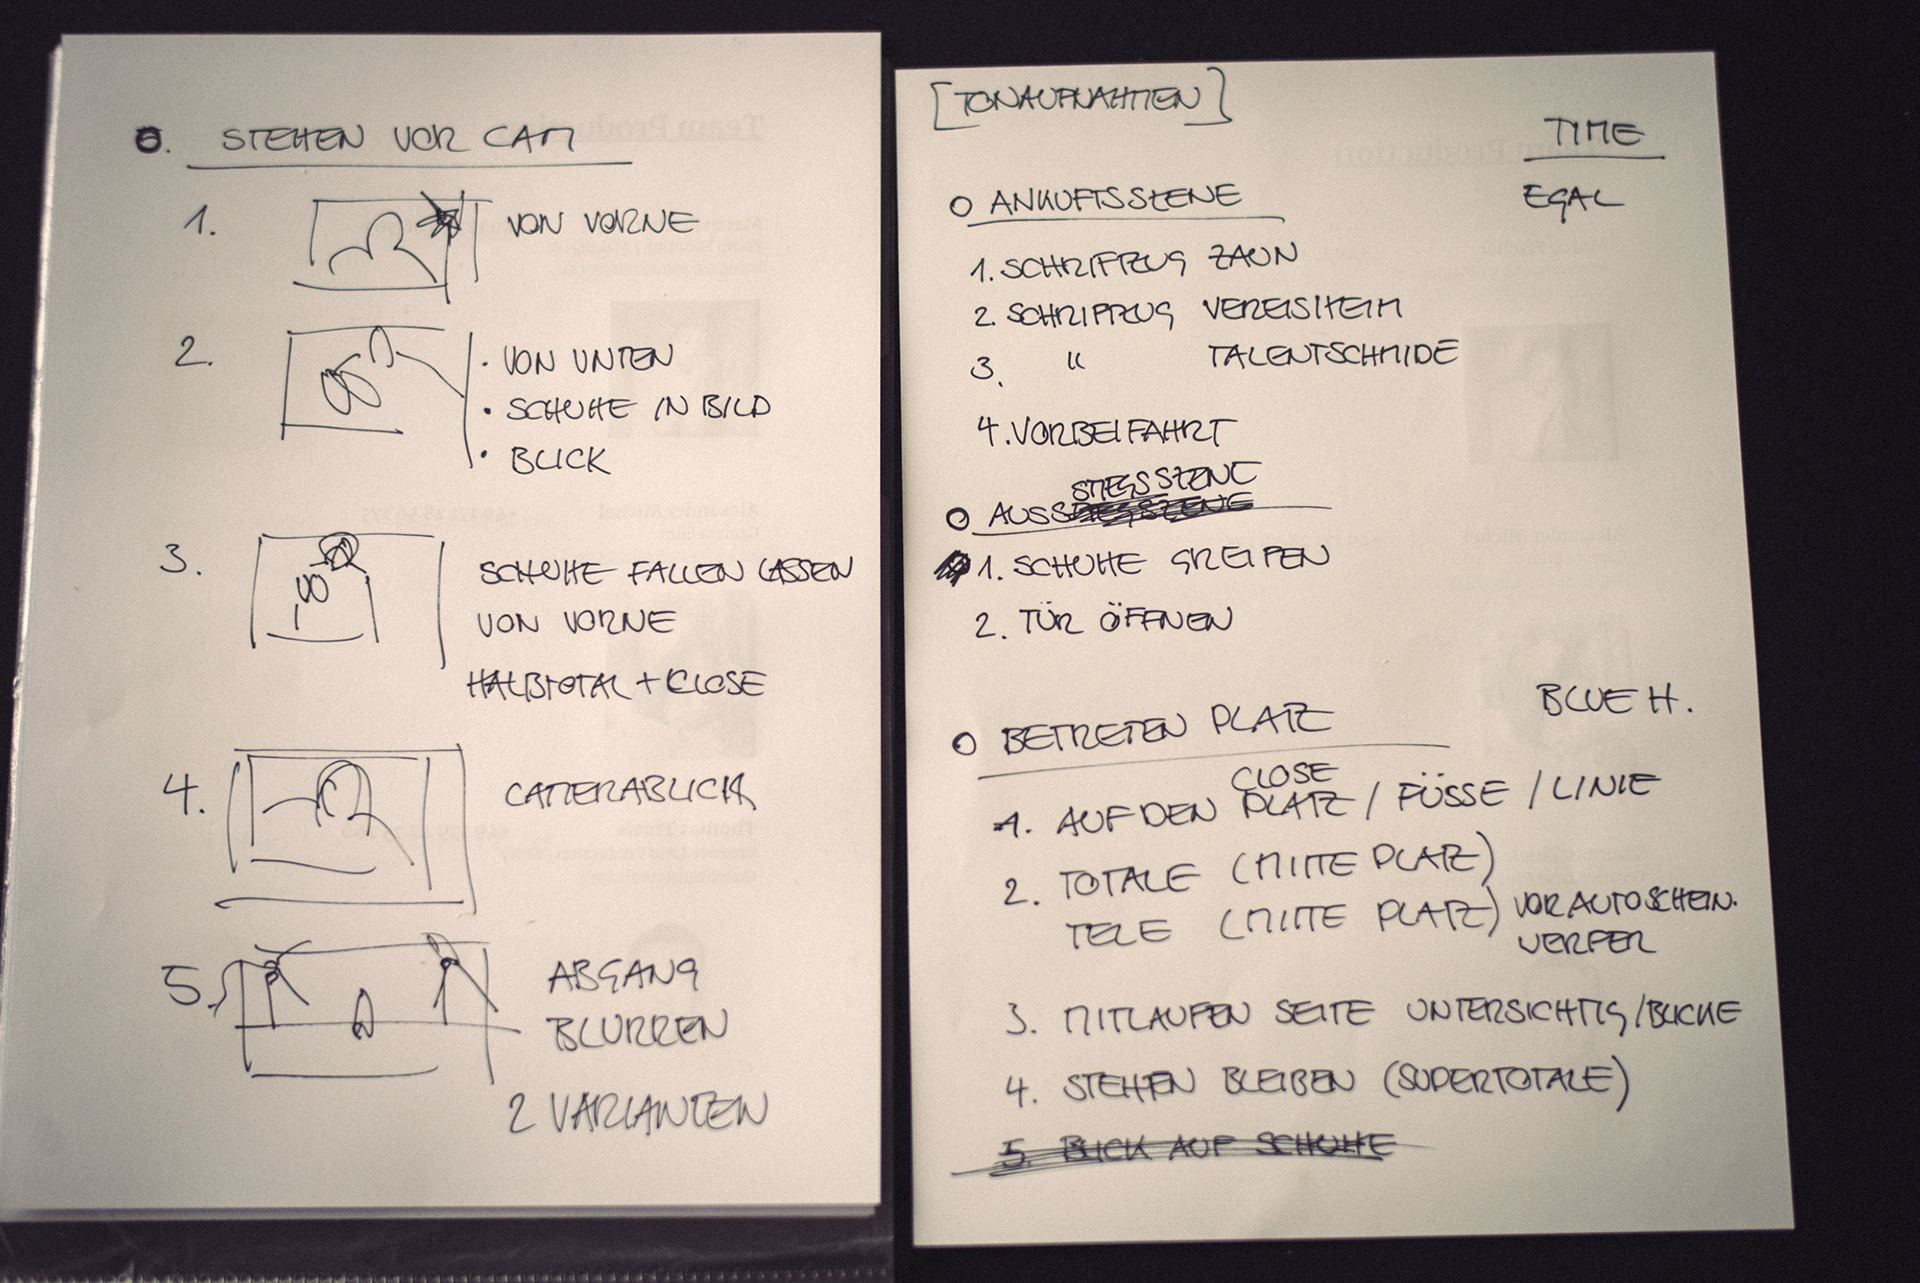 STEHEN VOR CAM
1. VON VORNE
2. • VON UNTEN
• SCHUHE IN BILD
• BLICK
3. SCHUHE FALLEN LASSEN
VON VORNE
HALBTOTAL + CLOSE
4. CAMERABLICK
5. ABGANG
BLURREN
2 VARIANTEN
[TONAUFNAHMEN]
TIME
O ANKUFTSSZENE EGAL
1. SCHRIFTZUG ZAUN
2. SCHRIFTZUG VEREISHEIM
3. " TALENTSCHMIDE
4. VORBEIFAHRT
STIEGSSZENE
O AUSS
1. SCHUHE GREIFEN
2. TÜR ÖFFNEN
BLUE H.
O BETRETEN PLATZ
CLOSE
1. AUF DEN PLATZ / FÜSSE / LINIE
2. TOTALE (MITTE PLATZ)
TELE (MITTE PLATZ) VOR AUTOSCHEIN.
WERFER
3. MITLAUFEN SEITE UNTERSICHTIG/BLICKE
4. STEHEN BLEIBEN (SUPERTOTALE)
5. BLICK AUF SCHUHE